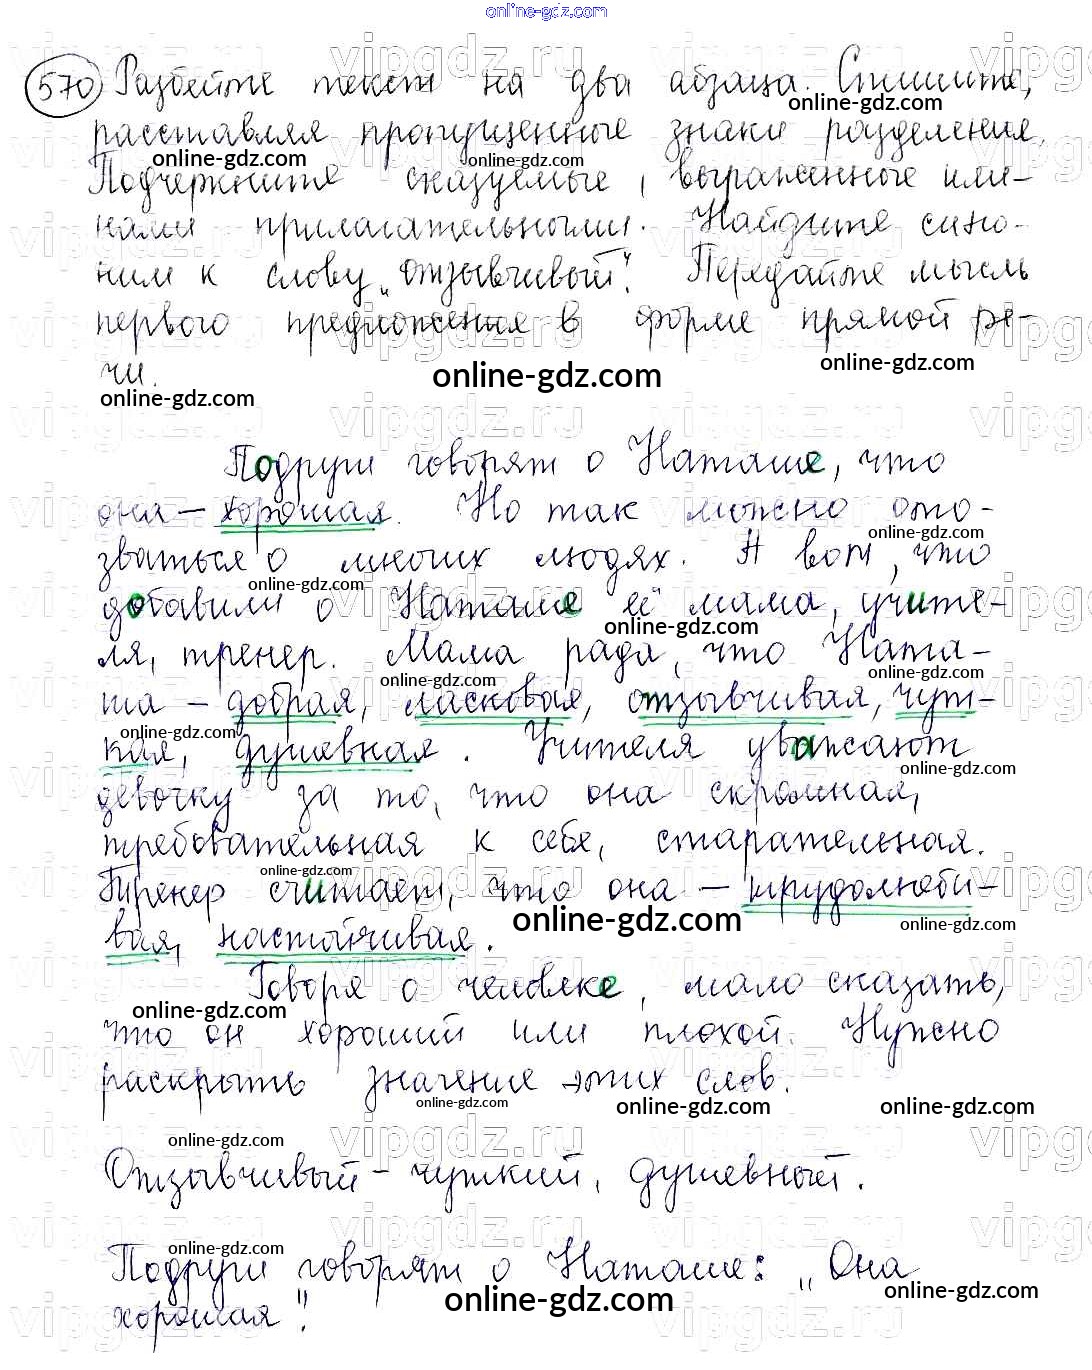 online-gdz.com
570 Разбейте текст на два абзаца. Спишите,
расставляя пропущенные знаки разделения.
Подчеркните сказуемые, выраженные име-
нами прилагательными. Найдите сино-
ним к слову „отзывчивый". Передайте мысль
первого предложения в форме прямой ре-
чи.
Подруги говорят о Наташе, что
она – хорошая. Но так можно ото-
зваться о многих людях. А вот, что
добавили о Наташе её мама, учите-
ля, тренер. Мама рада, что Ната-
ша – добрая, ласковая, отзывчивая, чут-
кая, душевная. Учителя уважают
девочку за то, что она скромная,
требовательная к себе, старательная.
Тренер считает, что она – трудолюби-
вая, настойчивая.
Говоря о человеке, мало сказать,
что он хороший или плохой. Нужно
раскрыть значение этих слов.
Отзывчивый – чуткий, душевный.
Подруги говорят о Наташе: „Она
хорошая".